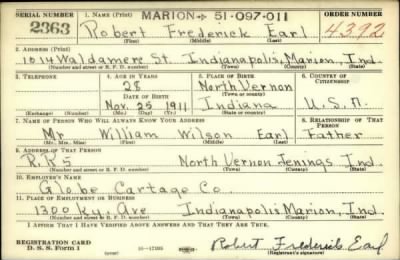 SERIAL NUMBER 1. NAME (Print) MARION 51-097-011 ORDER NUMBER
2363 Robert Frederick Earl 4392
(First) (Middle) (Last)
2. ADDRESS (Print)
1014 Waldamere St. Indianapolis, Marion, Ind.
(Number and street or R. F. D. number) (Town) (County) (State)
3. TELEPHONE 4. AGE IN YEARS 5. PLACE OF BIRTH 6. COUNTRY OF CITIZENSHIP
28 North Vernon
DATE OF BIRTH (Town or county)
Nov. 25 1911 Indiana U.S.A.
(Exchange) (Number) (Mo.) (Day) (Yr.) (State or country)
7. NAME OF PERSON WHO WILL ALWAYS KNOW YOUR ADDRESS 8. RELATIONSHIP OF THAT PERSON
Mr William Wilson Earl Father
(Mr., Mrs., Miss) (First) (Middle) (Last)
9. ADDRESS OF THAT PERSON
R.R 5 North Vernon Jenings Ind.
(Number and street or R. F. D. number) (Town) (County) (State)
10. EMPLOYER'S NAME
Globe Cartage Co.
11. PLACE OF EMPLOYMENT OR BUSINESS
1300 Ky. Ave Indianapolis, Marion, Ind.
(Number and street or R. F. D. number) (Town) (County) (State)
I AFFIRM THAT I HAVE VERIFIED ABOVE ANSWERS AND THAT THEY ARE TRUE.
REGISTRATION CARD
D. S. S. Form 1 16—17105 Robert Frederick Earl
(Registrant's signature)